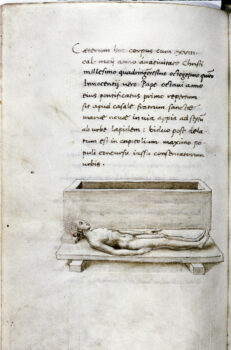 Cæterum hoc corpus cum xvi
cal. maij anno anativitate Christi
millesimo quadringentesimo octogesimo quinto
Innocentij vero Pape octavi anno
eius pontificatus primo repertum
sit apud casale fratrum sanctae
mariae novae in via appia ad sextum
ab urbe lapidem: biduo post dela
tum est in capitolium maximo po
puli concursu iussu conservatorum
urbis.